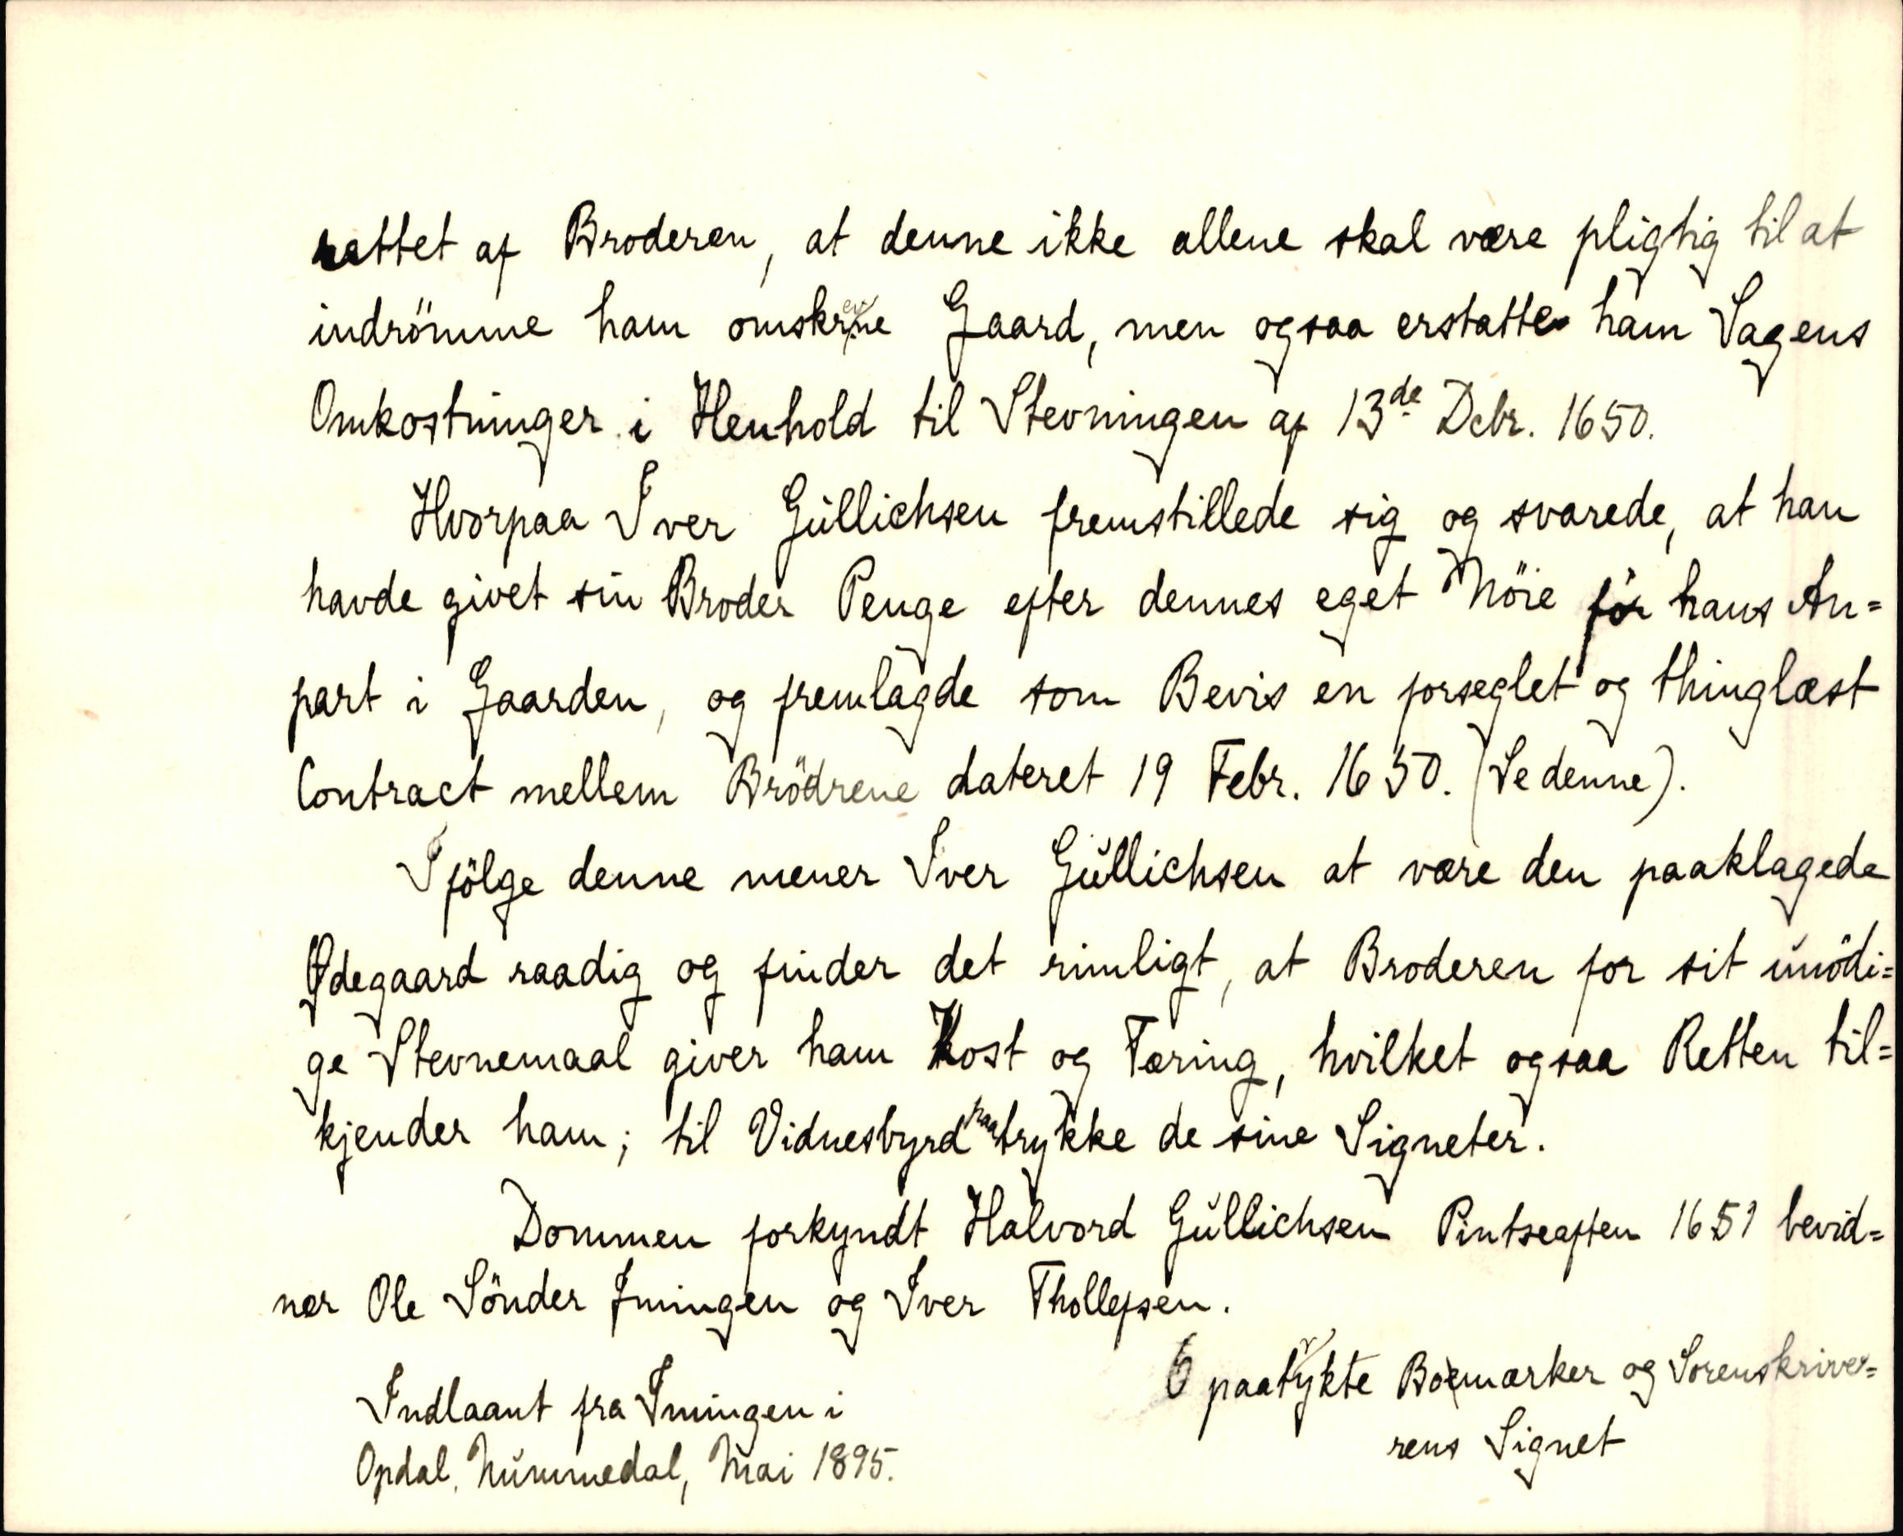 rettet af Broderen, at denne ikke allene skal være pligtig til at
indrömme ham omskrevne Gaard, men ogsaa erstatte ham Sagens
Omkostninger i Henhold til Stevningen af 13de Dcbr. 1650.
Hvorpaa Iver Gullichsen fremstillede sig og svarede, at han
havde givet sin Broder Penge efter dennes eget Nöie for hans An=
part i Gaarden, og fremlagde som Bevis en forseglet og thinglæst
Contract mellem Brödrene dateret 19 Febr. 1650. (Se denne).
Ifölge denne mener Iver Gullichsen at være den paaklagede
Ødegaard raadig og finder det rimligt, at Broderen for sit unödi=
ge Stevnemaal giver ham Kost og Tæring, hvilket ogsaa Retten til=
kjender ham; til Vidnesbyrd paatrykke de sine Signeter.
Dommen forkyndt Halvord Gullichsen Pintseaften 1651 bevid=
ner Ole Sönder Imingen og Iver Thollefsen.
6 paatrykte Bomærker og Sorenskrive=
rens Signet
Indlaant fra Imingen i
Opdal, Nummedal, Mai 1895.